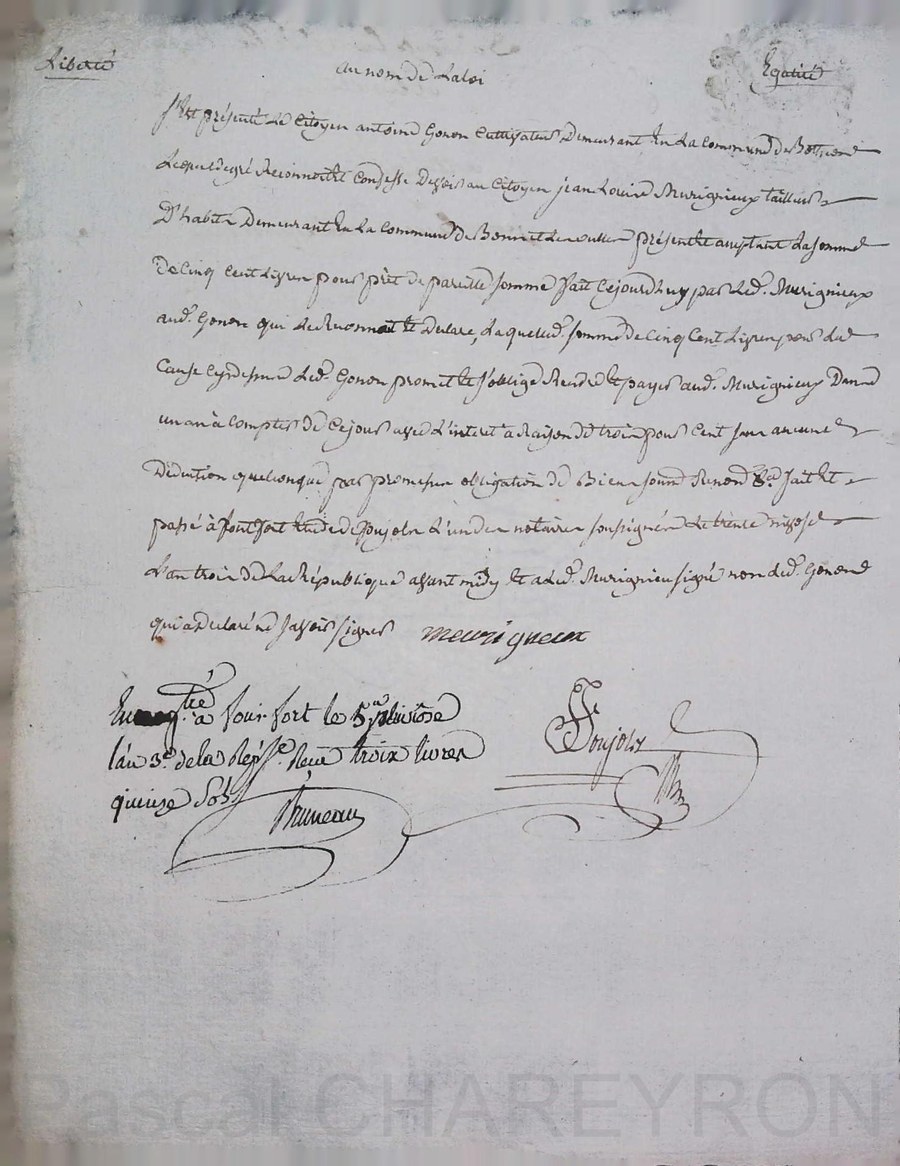 Liberté au nom de La Loi Egalité
s'Est présenté Le Citoyen antoine Gonon Cultivateur Demeurant En La Commune de
Lequel de gré Reconnoit Et Confesse Devoir au Citoyen jean Louis Murigneux tailleur
D'habits Demeurant En La Commune de Bonnet présent Et acceptant La somme
De Cinq Cent Livres pour prêt de pareille somme fait Cejourd'huy par Led. Murignieux
aud. Gonon qui Le Reconnait Et Declare, Laquelle d. somme de Cinq Cent Livres pour La d.
Cause Cy dessus Led. Gonon promet Et s'oblige Rendre Et payer aud. Murignieux Dans
un an à Compter de Ce jour avec L'interet a Raison de trois pour Cent sans aucune
Déduction quelconque par promesse obligation de Biens soum. Renon. &a. fait Et
passé à fontfort Etude de Pujolx L'un des notaires soussignés Le trente nivose
L'an trois de La République avant midy Et a Led. Murignieu signé non Led. Gonon
qui a Declaré ne savoir signer meurigneux
Enreg.tré à font-fort le 5 pluviose
l'an 3.e de la Rép.e Reçu trois livres
quinze sols
Bruneau
Poujolx